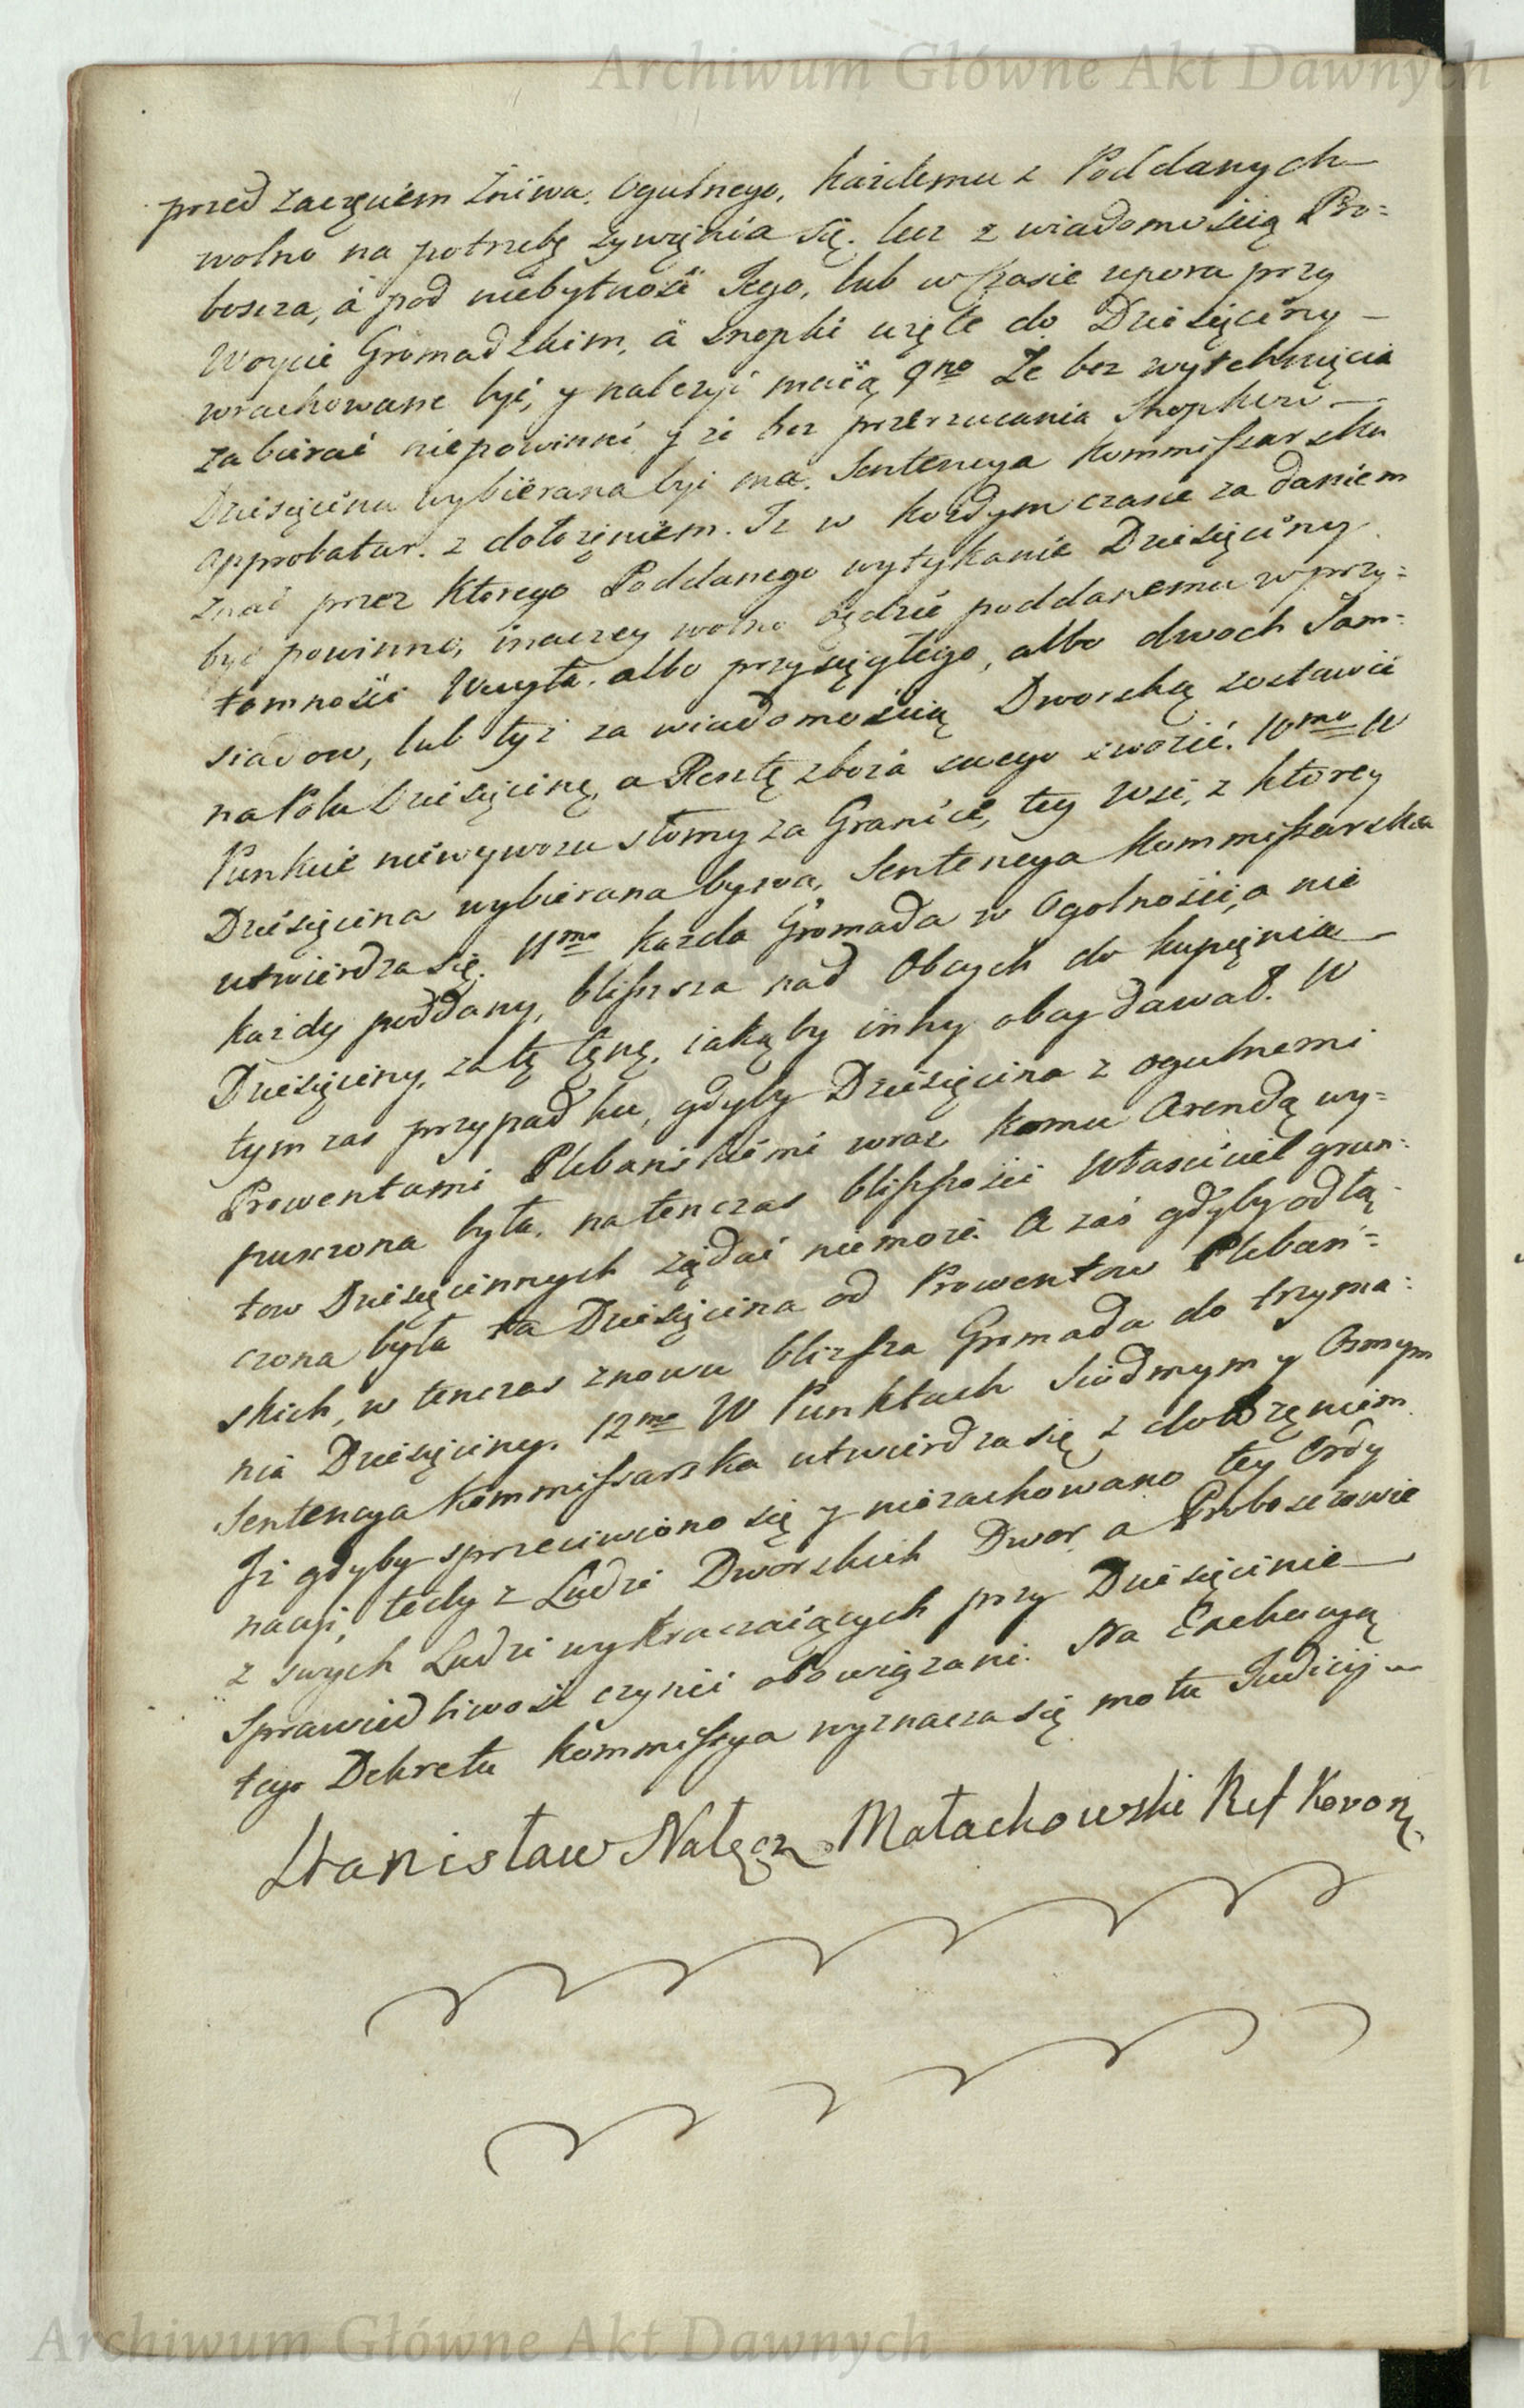 Archiwum Główne Akt Dawnych
przed zaczęciem Zniwa Ogulnego, każdemu z Poddanych
wolno na potrzebę zywięnia się. lecz z wiadomością Pro=
boscza, á pod niebytność Jego, lub w Czasie uporu przy
Woycie Gromadzkim, á snopki uzęte do Dziesięciny
wrachowane być, y należyć maią 9no Że bez wytchnięcia
zabierać niepowinni y że bez przerzucania Snopków
Dziesięcina wybierana być ma. Sentencya Kommissarska
approbatur. z dołozęniem. Iz w kozdym czasie za daniem
znać przez ktorego Poddanego wytykanie Dziesięciny
być powinno, inaczey wolno będzie poddanemu w przy=
tomności Woyta. albo przysięgłego, albo dwoch Sąm=
siadow, lub tyż za wiadomością Dworską zostawić
na Polu Dziesięcinę, a Resztę zboża swego zwozić. 10mo W
Punkcie niewywozu słomy za Granicę, tey Wsi, z ktorey
Dziesięcina wybierana bywa, Sentencya Kommissarska
utwierdza się. 11mo Kazda Gromada w Ogolności, a nie
kazdy poddany, blissza nad Obcych do kupięnia
Dziesięciny, za tę cęnę, iaką by inny obcy dawał. W
tym zas przypadku, gdyby Dziesięcina z ogulnemi
Prowentami Plebanskiemi wraz komu Arendą wy=
puszczona była, natenczas blisskości Własciciel grun=
tow Dziesięcinnych żądać niemoże. A zaś gdyby odłą=
czona była ta Dziesięcina od Prowentow Pleban=
skich, w tenczas znowu blizsza Gromada do trzyma=
nia Dziesięciny. 12mo W Punktach Siodmym y Osmym
Sentencya Kommissarska utwierdza się z dołozęniem
Iż gdyby sprzeciwiono się y niezachowano tey Ordy
nacyi, tedy z Ludzi Dworskich Dwor, a Proboszczowie
z swych Ludzi wykraczaiących przy Dziesięcinie
Sprawiedliwość czynić obowiązani. Na Exekucyą
tego Dekretu Kommissya wyznacza się motu Judicij
Stanisław Nałęcz Małachowski Ref Koronę.
Archiwum Główne Akt Dawnych